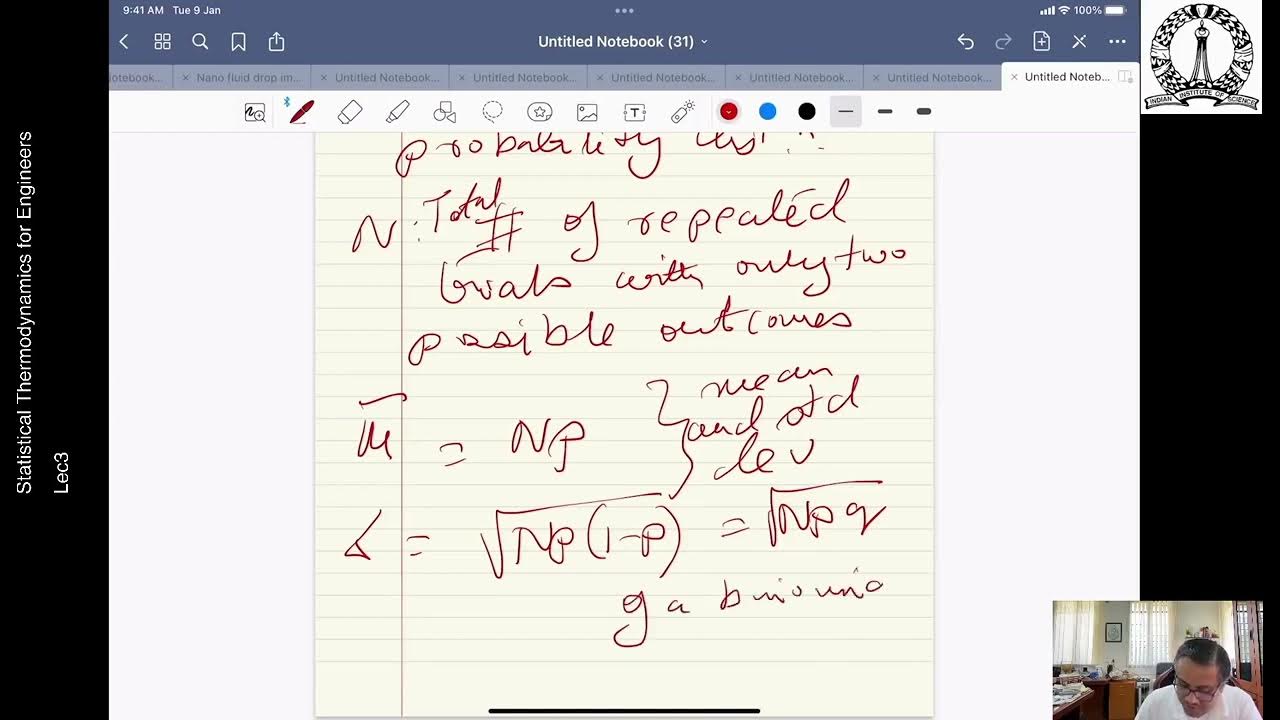 9:41 AM Tue 9 Jan
100%
Untitled Notebook (31)
otebook...
Nano fluid drop im...
Untitled Notebook...
Untitled Notebook...
Untitled Notebook...
Untitled Notebook...
Untitled Notebook...
Untitled Noteb...
INDIAN INSTITUTE OF SCIENCE
Statistical Thermodynamics for Engineers
Lec3
probability
N: Total # of repeated
trials with only two
possible outcomes
= Np } mean and std dev
= √Np(1-p) = √Npq
a binomia